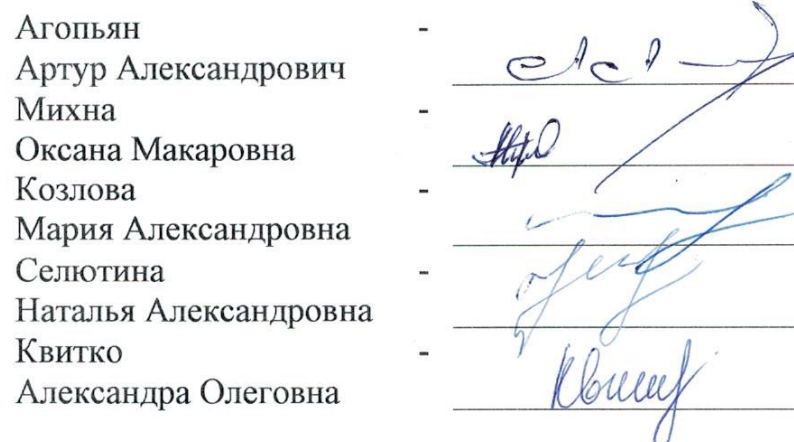 Агопьян -
Артур Александрович
Михна -
Оксана Макаровна
Козлова -
Мария Александровна
Селютина -
Наталья Александровна
Квитко -
Александра Олеговна